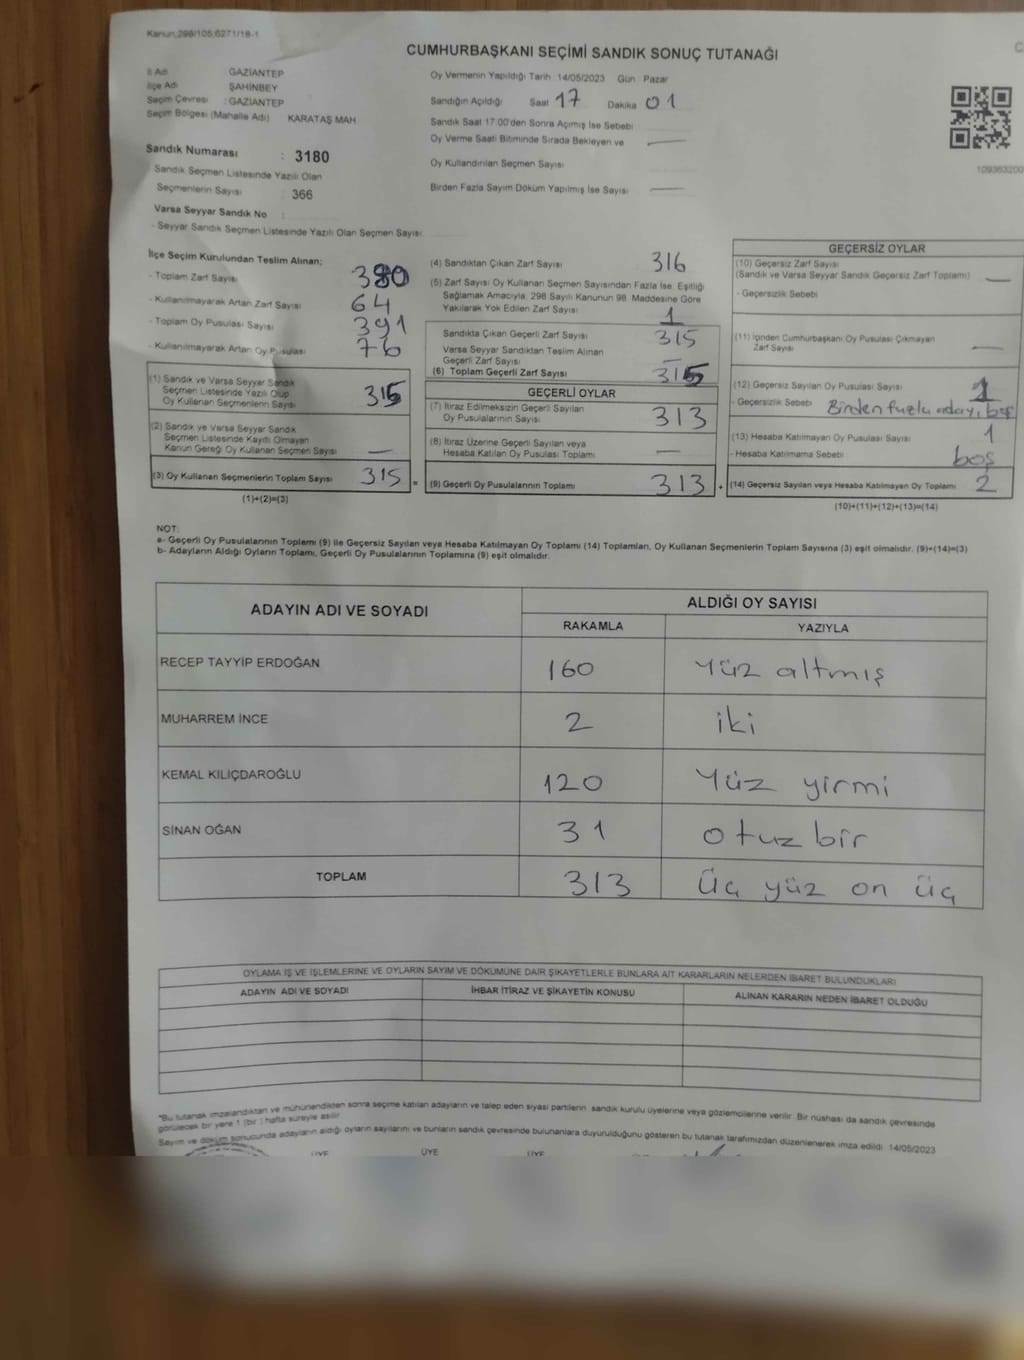 Kanun:298/105;6271/18-1
CUMHURBAŞKANI SEÇİMİ SANDIK SONUÇ TUTANAĞI
İl Adı GAZİANTEP
İlçe Adı ŞAHİNBEY
Seçim Çevresi : GAZİANTEP
Seçim Bölgesi (Mahalle Adı) KARATAŞ MAH
Sandık Numarası : 3180
Sandık Seçmen Listesinde Yazılı Olan
Seçmenlerin Sayısı : 366
Varsa Seyyar Sandık No :
- Seyyar Sandık Seçmen Listesinde Yazılı Olan Seçmen Sayısı:
Oy Vermenin Yapıldığı Tarih :14/05/2023 Gün : Pazar
Sandığın Açıldığı Saat 17 Dakika 01
Sandık Saat 17:00'den Sonra Açımış İse Sebebi
Oy Verme Saati Bitiminde Sırada Bekleyen ve
Oy Kullandırılan Seçmen Sayısı
Birden Fazla Sayım Döküm Yapılmış İse Sayısı
109363200
İlçe Seçim Kurulundan Teslim Alınan;
- Toplam Zarf Sayısı 380
- Kullanılmayarak Artan Zarf Sayısı 64
- Toplam Oy Pusulası Sayısı 391
- Kullanılmayarak Artan Oy Pusulası 76
(1) Sandık ve Varsa Seyyar Sandık
Seçmen Listesinde Yazılı Olup
Oy Kullanan Seçmenlerin Sayısı 315
(2) Sandık ve Varsa Seyyar Sandık
Seçmen Listesinde Kayıtlı Olmayan
Kanun Gereği Oy Kullanan Seçmen Sayısı —
(3) Oy Kullanan Seçmenlerin Toplam Sayısı 315 =
(1)+(2)=(3)
(4) Sandıktan Çıkan Zarf Sayısı 316
(5) Zarf Sayısı Oy Kullanan Seçmen Sayısından Fazla İse, Eşitliği
Sağlamak Amacıyla, 298 Sayılı Kanunun 98. Maddesine Göre
Yakılarak Yok Edilen Zarf Sayısı 1
Sandıkta Çıkan Geçerli Zarf Sayısı 315
Varsa Seyyar Sandıktan Teslim Alınan
Geçerli Zarf Sayısı —
(6) Toplam Geçerli Zarf Sayısı 315
GEÇERLİ OYLAR
(7) İtiraz Edilmeksizin Geçerli Sayılan
Oy Pusulalarının Sayısı 313
(8) İtiraz Üzerine Geçerli Sayılan veya
Hesaba Katılan Oy Pusulası Toplamı —
(9) Geçerli Oy Pusulalarının Toplamı 313 +
GEÇERSİZ OYLAR
(10) Geçersiz Zarf Sayısı
(Sandık ve Varsa Seyyar Sandık Geçersiz Zarf Toplamı) —
- Geçersizlik Sebebi
(11) İçinden Cumhurbaşkanı Oy Pusulası Çıkmayan
Zarf Sayısı —
(12) Geçersiz Sayılan Oy Pusulası Sayısı 1
- Geçersizlik Sebebi Birden
(13) Hesaba Katılmayan Oy Pusulası Sayısı 1
- Hesaba Katılmama Sebebi boş
(14) Geçersiz Sayılan veya Hesaba Katılmayan Oy Toplamı 2
(10)+(11)+(12)+(13)=(14)
NOT:
a- Geçerli Oy Pusulalarının Toplamı (9) ile Geçersiz Sayılan veya Hesaba Katılmayan Oy Toplamı (14) Toplamları, Oy Kullanan Seçmenlerin Toplam Sayısına (3) eşit olmalıdır. (9)+(14)=(3)
b- Adayların Aldığı Oyların Toplamı, Geçerli Oy Pusulalarının Toplamına (9) eşit olmalıdır.
ADAYIN ADI VE SOYADI ALDIĞI OY SAYISI
RAKAMLA YAZIYLA
RECEP TAYYİP ERDOĞAN 160 Yüz altmış
MUHARREM İNCE 2 iki
KEMAL KILIÇDAROĞLU 120 Yüz yirmi
SİNAN OĞAN 31 otuz bir
TOPLAM 313 Üç yüz on üç
OYLAMA İŞ VE İŞLEMLERİNE VE OYLARIN SAYIM VE DÖKÜMÜNE DAİR ŞİKAYETLERLE BUNLARA AİT KARARLARIN NELERDEN İBARET BULUNDUKLARI
ADAYIN ADI VE SOYADI İHBAR İTİRAZ VE ŞİKAYETİN KONUSU ALINAN KARARIN NEDEN İBARET OLDUĞU
*Bu tutanak imzalandıktan ve mühürlendikten sonra seçime katılan adayların ve talep eden siyasi partilerin sandık kurulu üyelerine veya gözlemcilerine verilir. Bir nüshası da sandık çevresinde
görülecek bir yere 1 (bir ) hafta süreyle asılır.
Sayım ve döküm sonucunda adayların aldığı oyların sayılarını ve bunların sandık çevresinde bulunanlara duyurulduğunu gösteren bu tutanak tarafımızdan düzenlenerek imza edildi. 14/05/2023
ÜYE ÜYE ÜYE